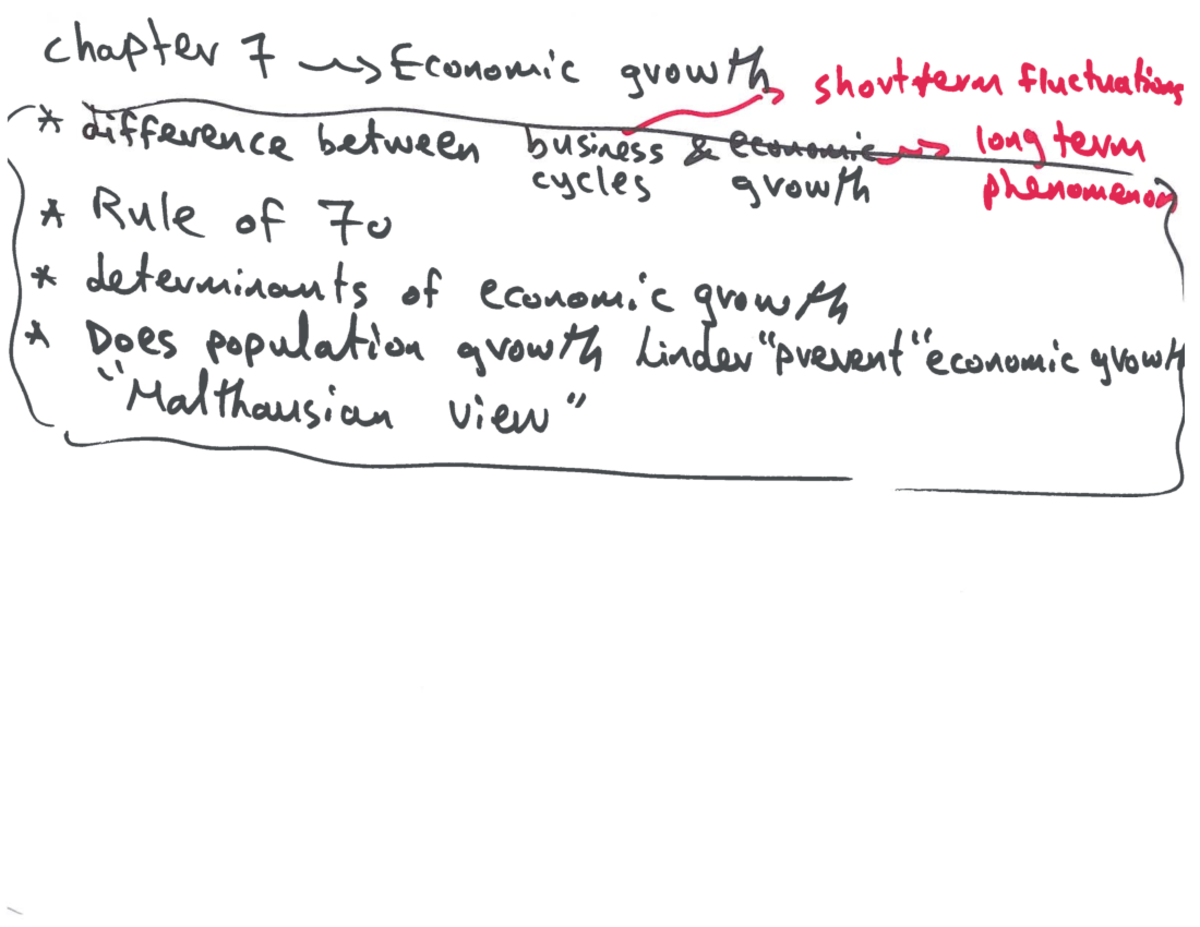 chapter 7 → Economic growth
short term fluctuations
* difference between business & economic → long term
cycles growth phenomenon
* Rule of 70
* determinants of economic growth
* Does population growth hinder "prevent" economic growth
"Malthausian view"